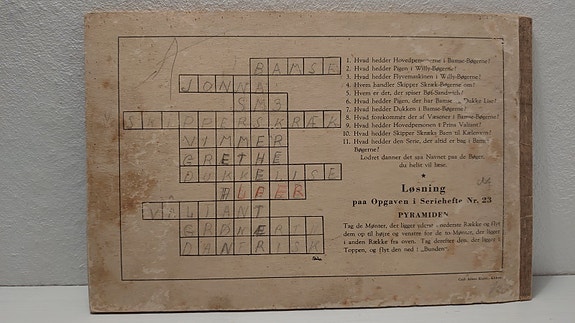 BAMSE
JONNA
SM3
SKIPPERSKRÆK
VIMMER
GRETHE
DUKKELISE
ALPER
VALIANT
DANTRISK
1. Hvad hedder Hovedpersonerne i Bamse-Bøgerne?
2. Hvad hedder Pigen i Willy-Bøgerne?
3. Hvad hedder Flyvemaskinen i Willy-Bøgerne?
4. Hvem handler Skipper Skræks Bøgerne om?
5. Hvem er det, der spiser Bøf-Sandwich?
6. Hvad hedder Pigen, der har Bamse Dukke Lise?
7. Hvad hedder Dukken i Bamse-Bøgerne?
8. Hvad forekommer der af Væsener i Bamse-Bøgerne?
9. Hvad hedder Hovedpersonen i Prins Valiant?
10. Hvad hedder Skipper Skræks Barn til Kælenavn?
11. Hvad hedder den Serie, der altid er bag i Bamse-
Bøgerne?
Lodret danner det saa Navnet paa de Bøger,
du helst vil læse.
Løsning
paa Opgaven i Seriehefte Nr. 23
PYRAMIDEN
Tag de Mønter, der ligger yderst i nederste Række og flyt
dem op til højre og venstre for de to Mønter, der ligger
i anden Række fra oven. Tag derefter den, der ligger i
Toppen, og flyt den ned i „Bunden“.